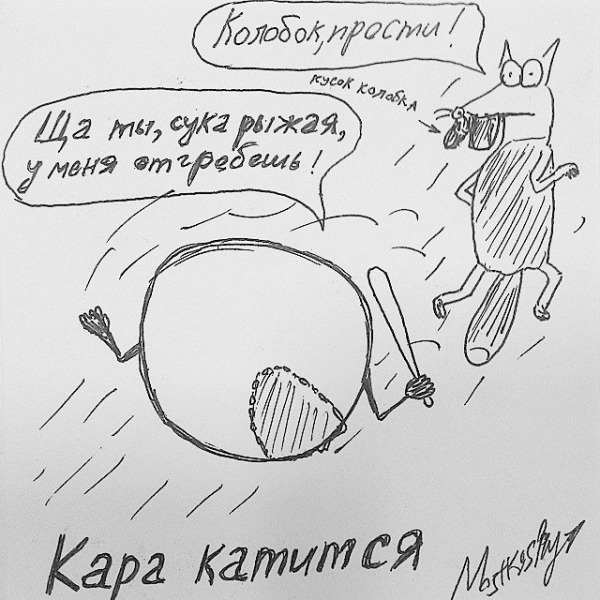 Колобок, прости!
кусок колобка
Ща ты, сука рыжая,
у меня отгребёшь!
Кара катится